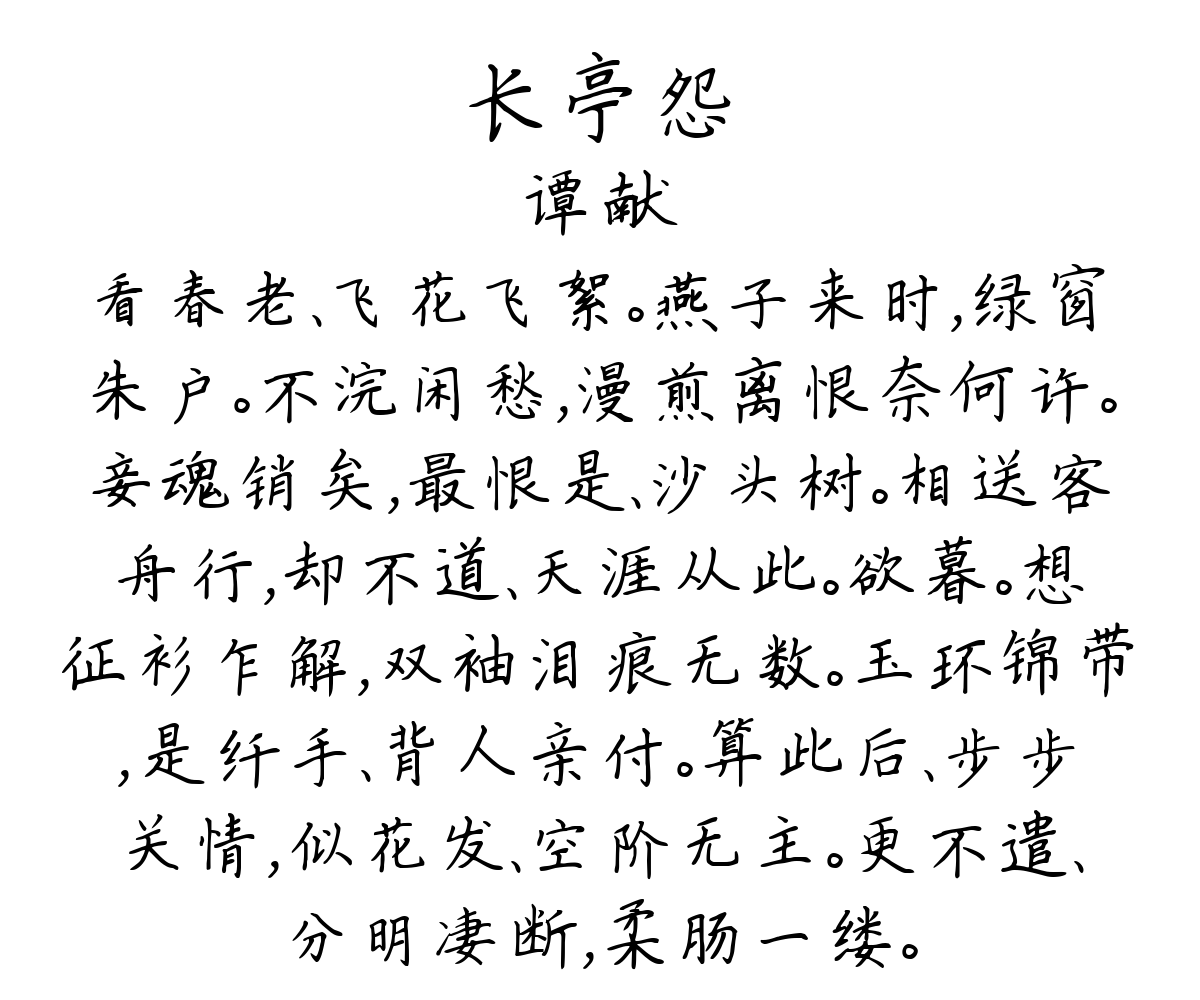 长亭怨
谭献
看春老、飞花飞絮。燕子来时,绿窗
朱户。不浣闲愁,漫煎离恨奈何许。
妾魂销矣,最恨是、沙头树。相送客
舟行,却不道、天涯从此。欲暮。想
征衫乍解,双袖泪痕无数。玉环锦带
,是纤手、背人亲付。算此后、步步
关情,似花发、空阶无主。更不遣、
分明凄断,柔肠一缕。